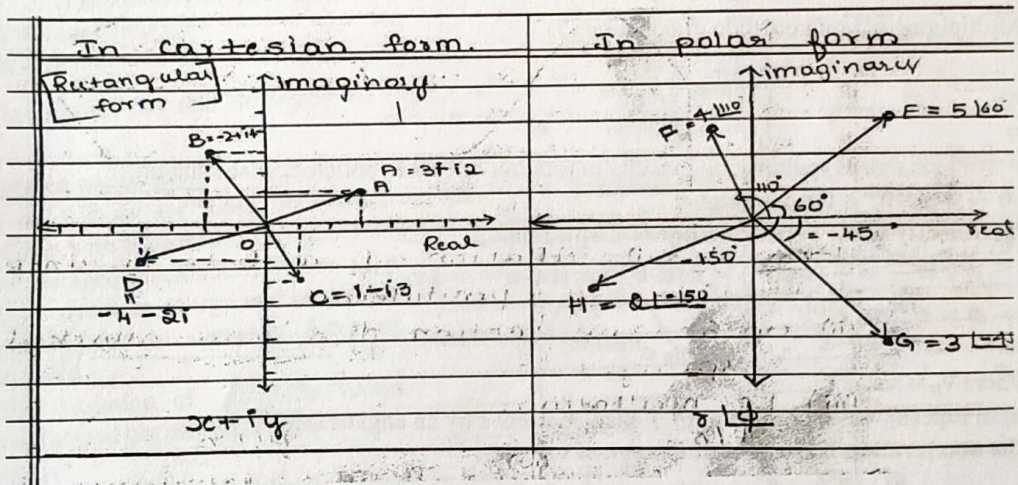 In cartesian form.
Rectangular
form
imaginary
B=-2+i4
A = 3+i2
A
0
Real
D
=
-4-2i
C = 1-i3
x+iy
In polar form
imaginary
F = 4∠110°
E = 5∠60°
110°
60°
= -45°
real
-150°
H = 2∠-150
G = 3∠-4
r∠φ